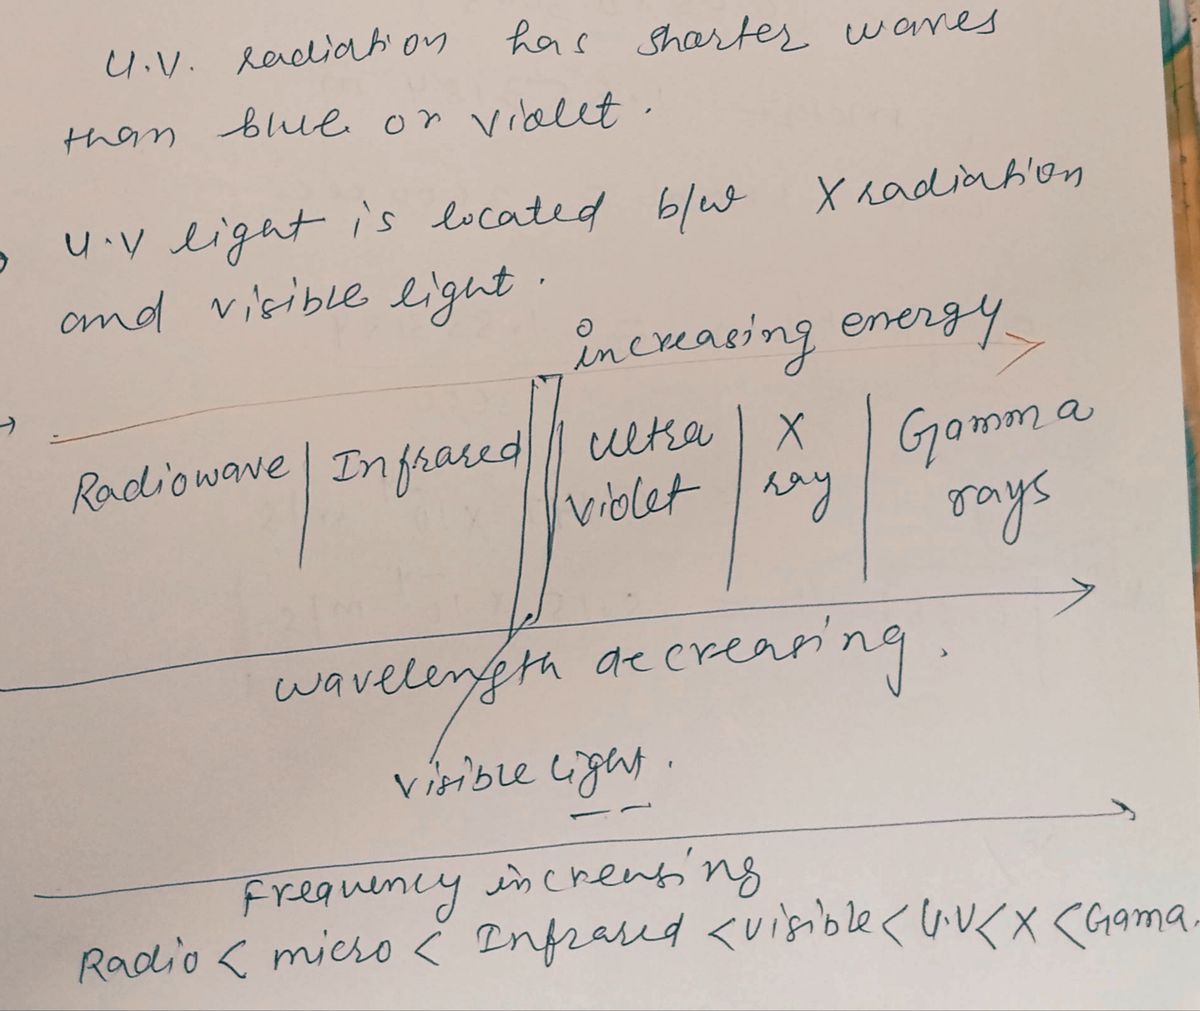 U.V. radiation has sharter waves
than blue or violet.
U.V light is located b/w X radiation
and visible light.
increasing energy
Radiowave | Infrared | ultra violet | X ray | Gamma rays
wavelength decreasing.
visible light.
Frequency increasing
Radio < micro < Infrared < visible < U.V < X < Gama.